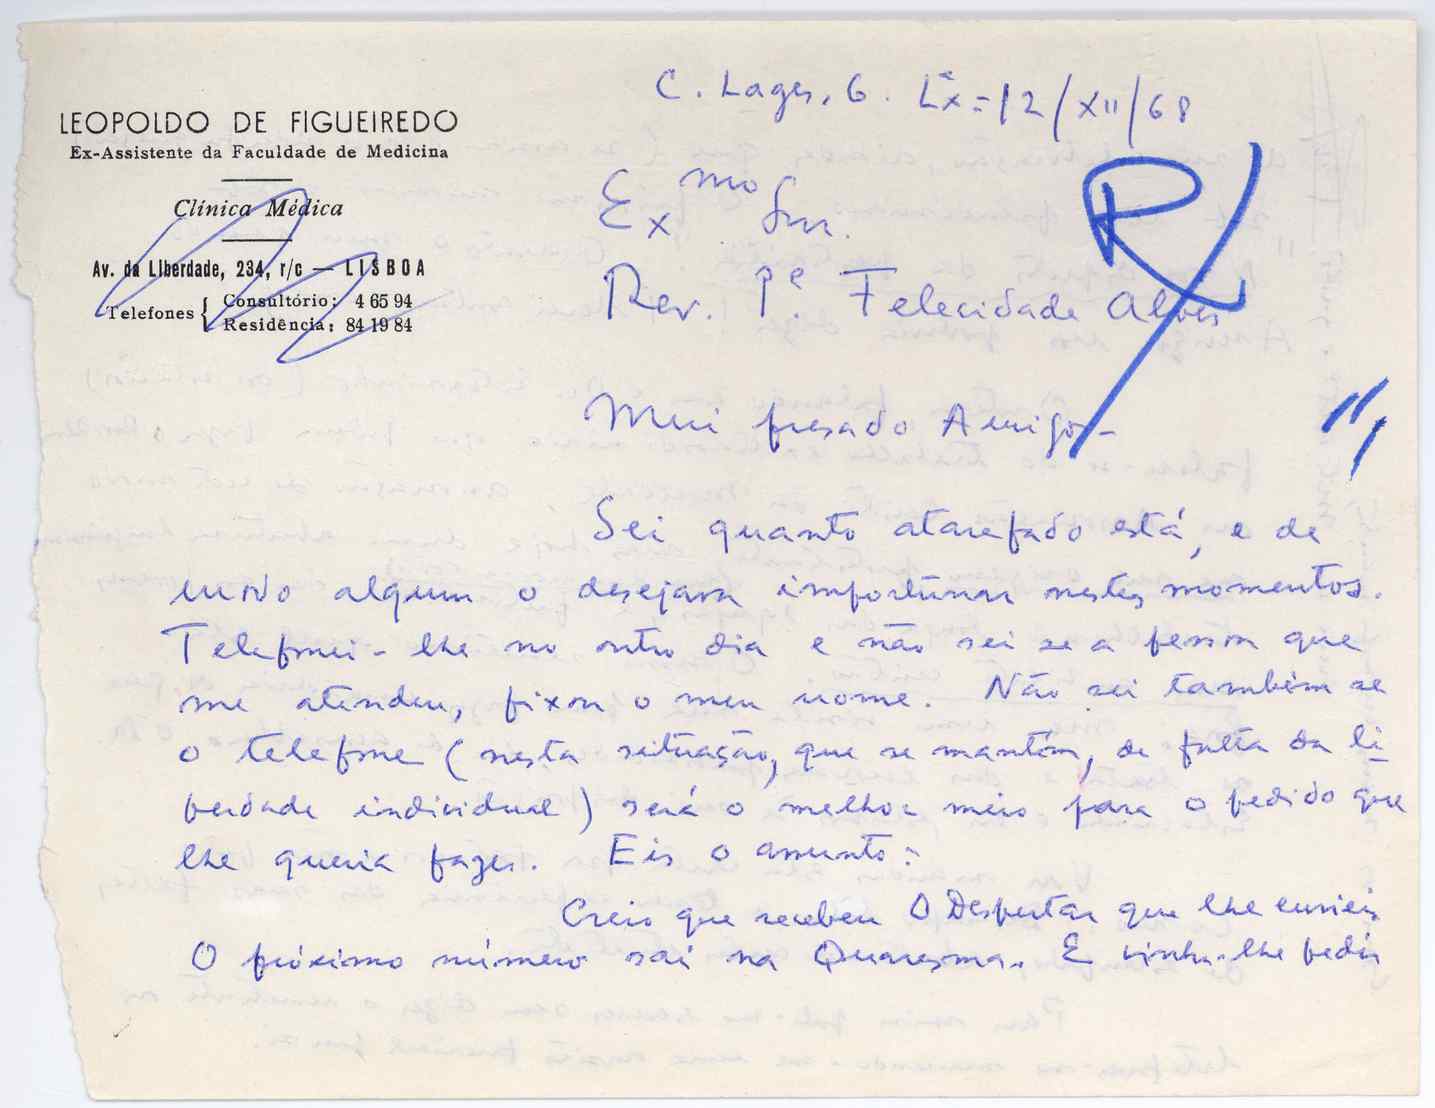 C. Lages, 6. Lx=12/XII/68
LEOPOLDO DE FIGUEIREDO
Ex-Assistente da Faculdade de Medicina
Clínica Médica
Av. da Liberdade, 234, r/c — LISBOA
Telefones { Consultório: 4 65 94
Residência: 84 19 84
Exmo Snr.
Rev. Pe. Felecidade Alves
R
Meu presado Amigo-
Sei quanto atarefado está, e de
modo algum o desejava importunar nestes momentos.
Telefonei-lhe no outro dia e não sei se a pessoa que
me atendeu, fixou o meu nome. Não sei também se
o telefone (nesta situação, que se mantém, de falta da li-
berdade individual) será o melhor meio para o pedido que
lhe queria fazer. Eis o assunto:
Creio que recebeu O Despertar que lhe enviei.
O próximo número sai na Quaresma. E vinha-lhe pedir